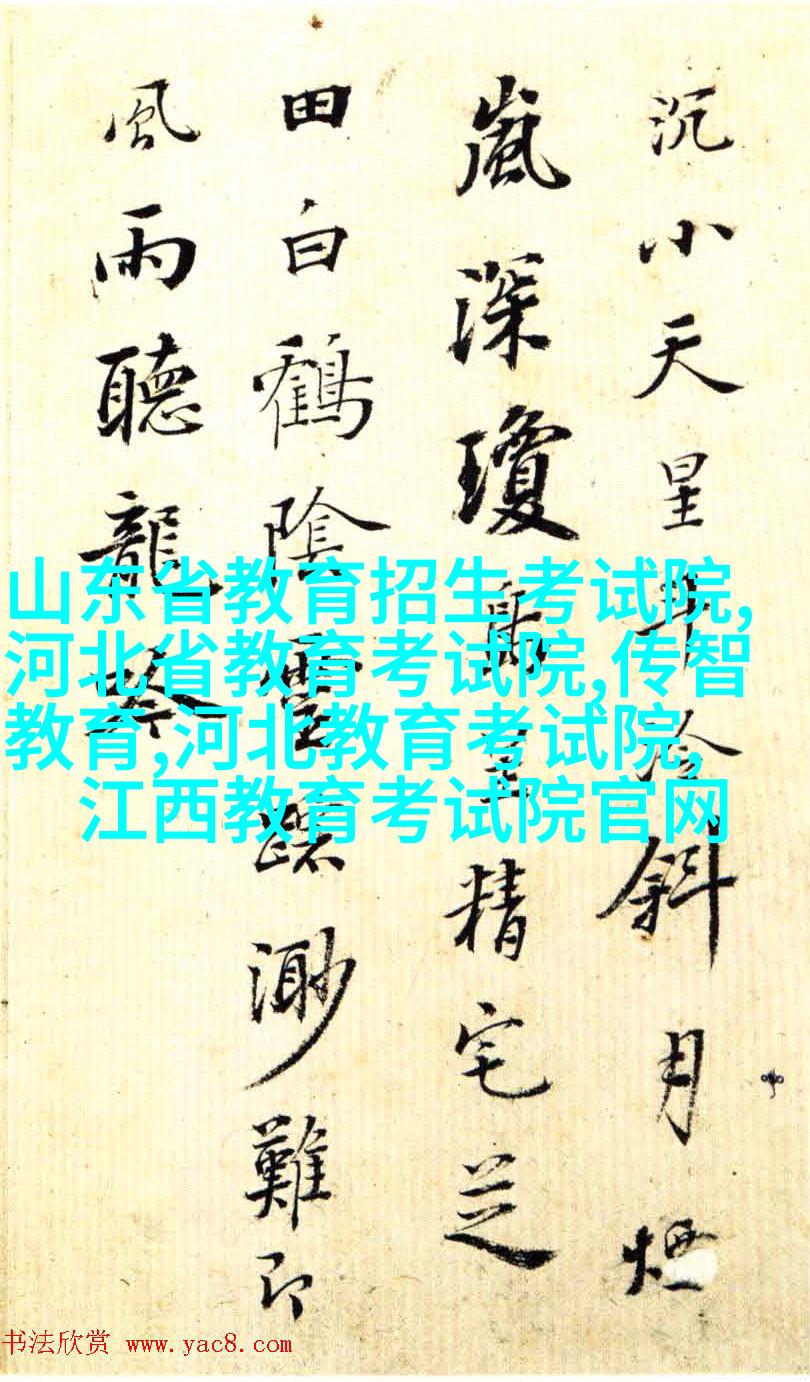 沉小天星斗冷斜月煙
嵐深瓊
精宅芝
田白鶴陰
靈蹤渺難即
風雨聽龍
山东省教育招生考试院,
河北省教育考试院,传智
教育,河北教育考试院,
江西教育考试院官网
书法欣赏 www.yac8.com